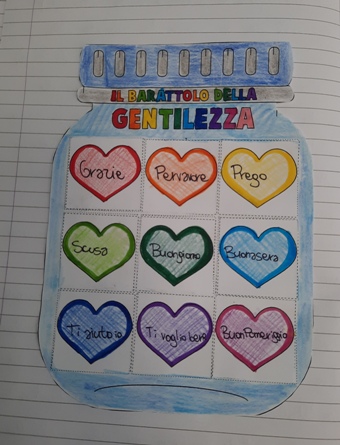 IL BARATTOLO DELLA
GENTILEZZA
Grazie
Per favore
Prego
Scusa
Buongiorno
Buonasera
Ti aiuto io
Ti voglio bene
Buon Pomeriggio